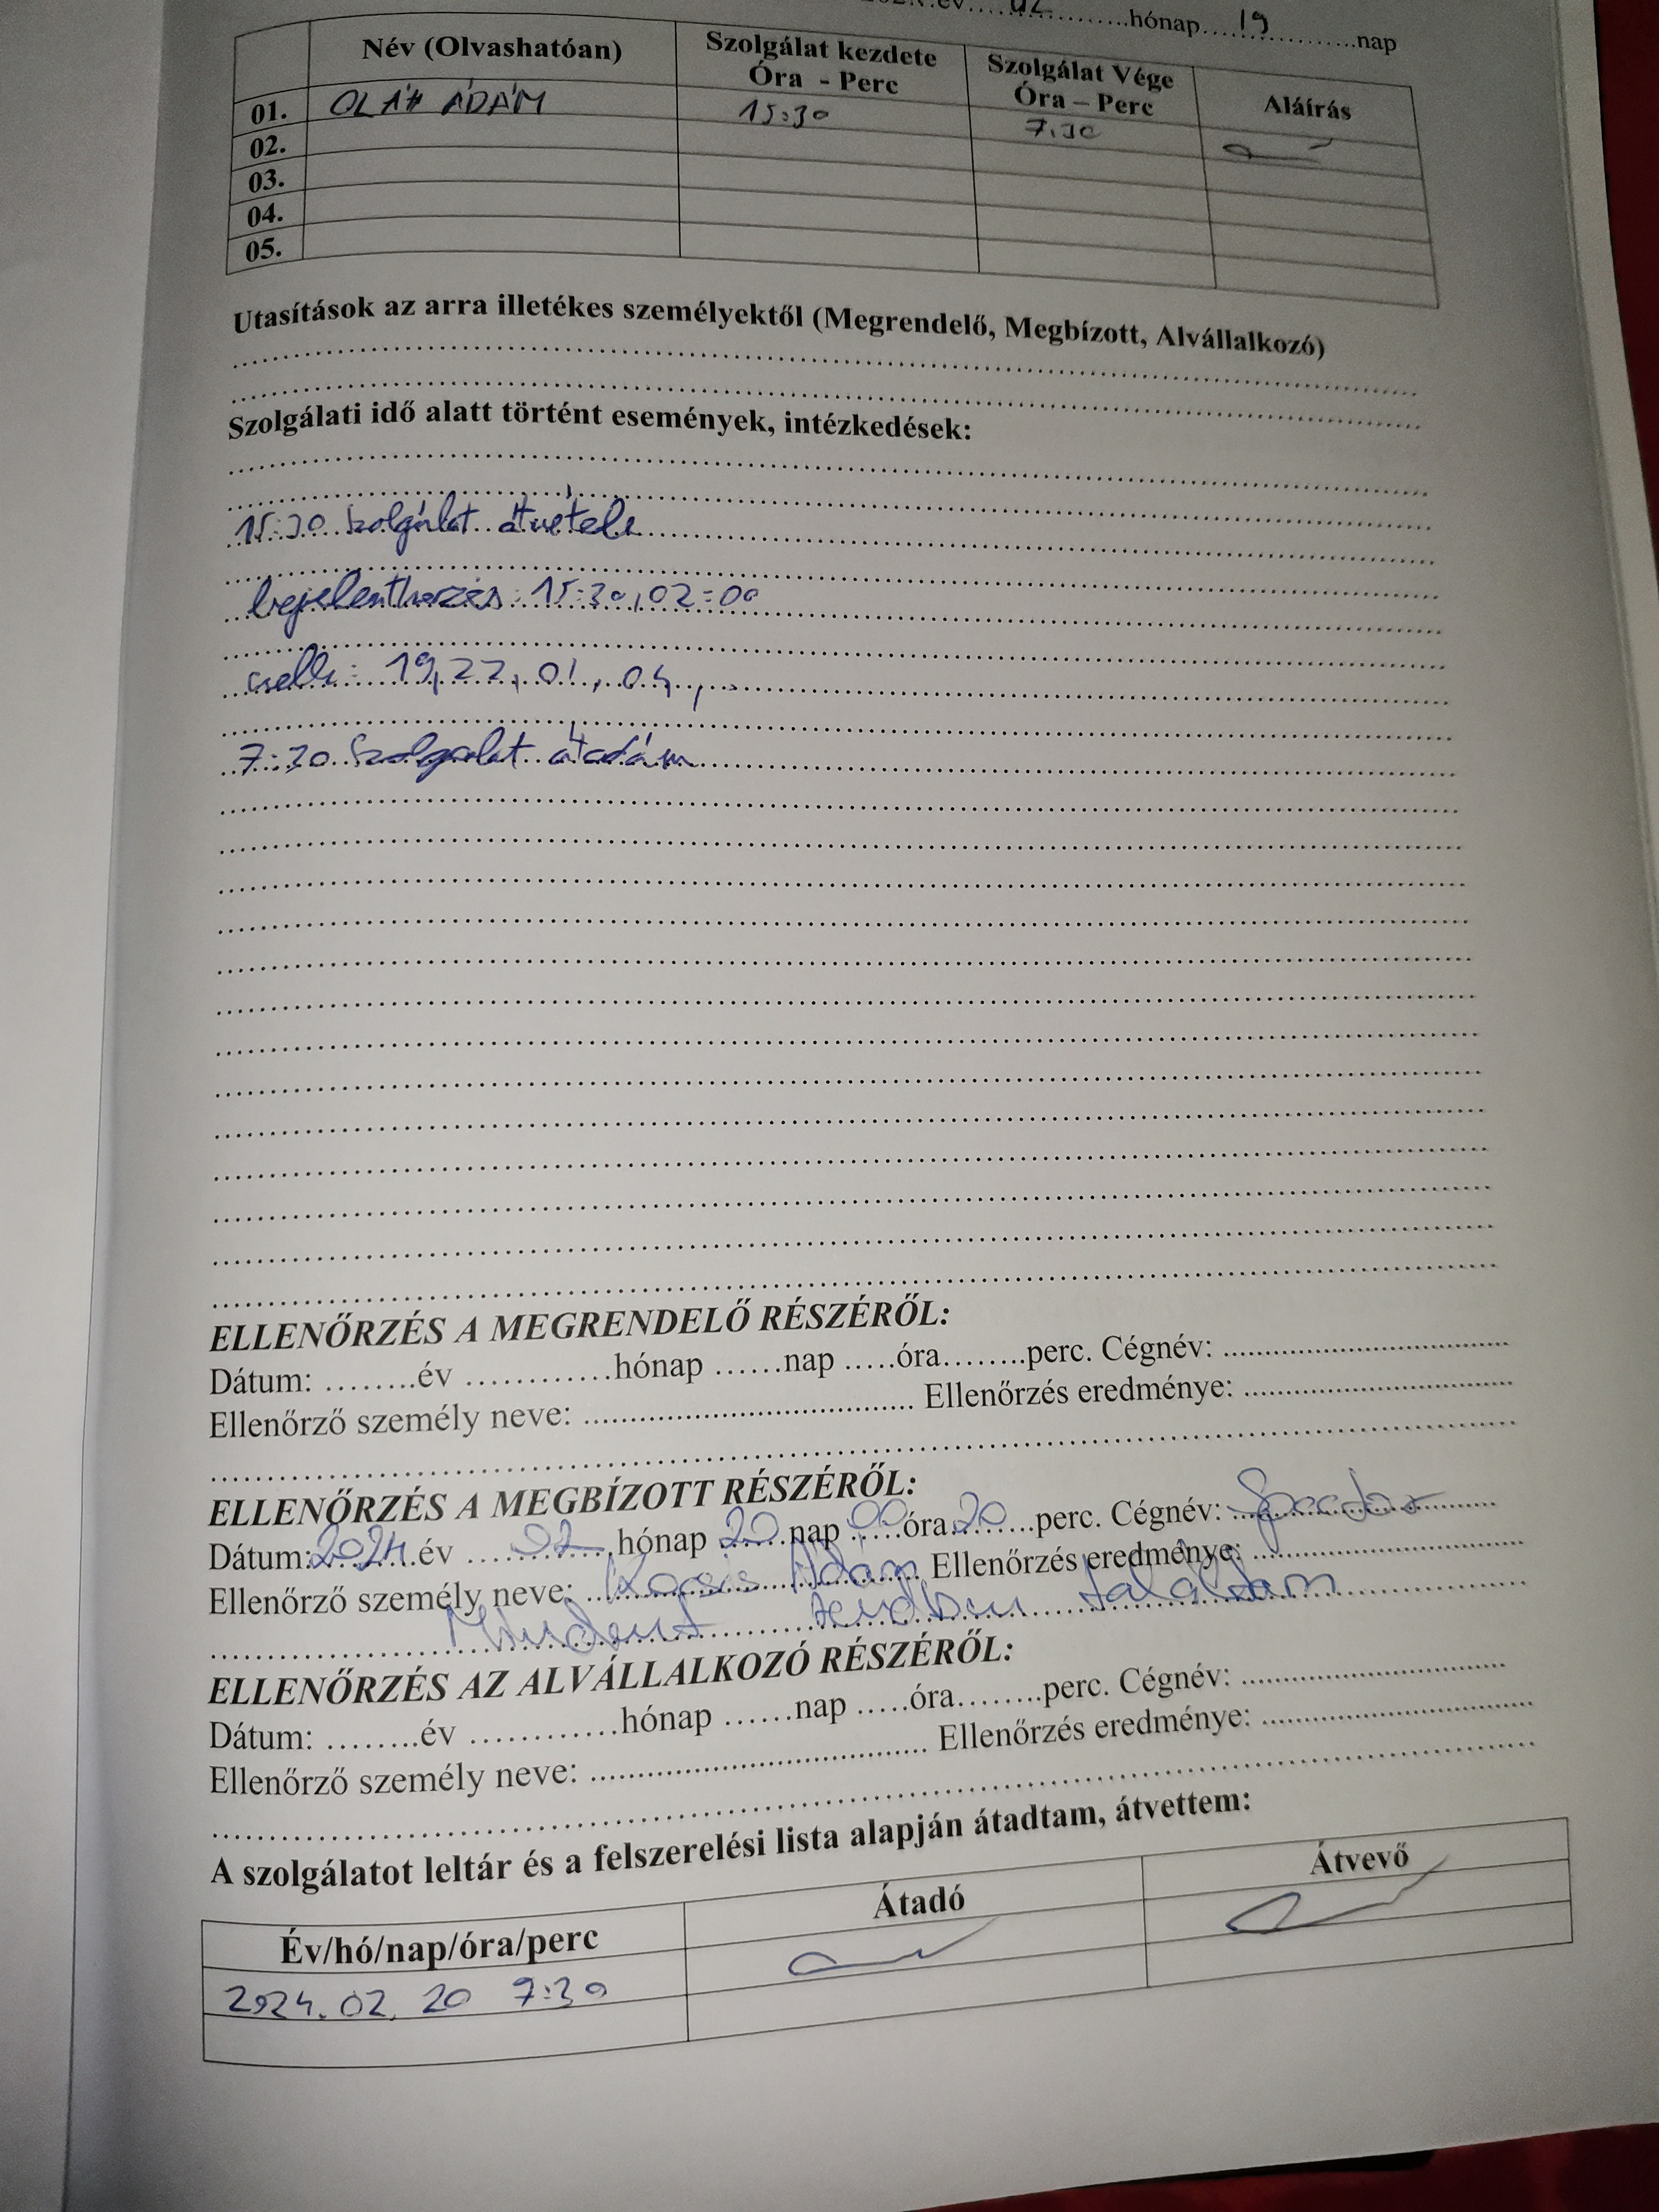 év....02..............hónap....19..............nap
Név (Olvashatóan) Szolgálat kezdete Óra - Perc Szolgálat Vége Óra – Perc Aláírás
01. OLÁH ÁDÁM 15:30 7:30
02.
03.
04.
05.
Utasítások az arra illetékes személyektől (Megrendelő, Megbízott, Alvállalkozó)
Szolgálati idő alatt történt események, intézkedések:
15:30 Szolgálat átvétele
bejelentkezés: 15:30, 02:00
cselh: 19, 22, 01, 04,
7:30 Szolgalat átadám
ELLENŐRZÉS A MEGRENDELŐ RÉSZÉRŐL:
Dátum: ........év .............hónap ......nap .....óra........perc. Cégnév: ..................................
Ellenőrző személy neve: ........................................ Ellenőrzés eredménye: ................................
ELLENŐRZÉS A MEGBÍZOTT RÉSZÉRŐL:
Dátum: 2024 év 02 hónap 20 nap 00 óra 20 perc. Cégnév:
Ellenőrző személy neve: Kocsis Ádám Ellenőrzés eredménye:
Mindent rendben találtam
ELLENŐRZÉS AZ ALVÁLLALKOZÓ RÉSZÉRŐL:
Dátum: ........év .............hónap ......nap .....óra........perc. Cégnév: ................................
Ellenőrző személy neve: ........................................ Ellenőrzés eredménye: ................................
A szolgálatot leltár és a felszerelési lista alapján átadtam, átvettem:
Év/hó/nap/óra/perc Átadó Átvevő
2024.02.20 7:30